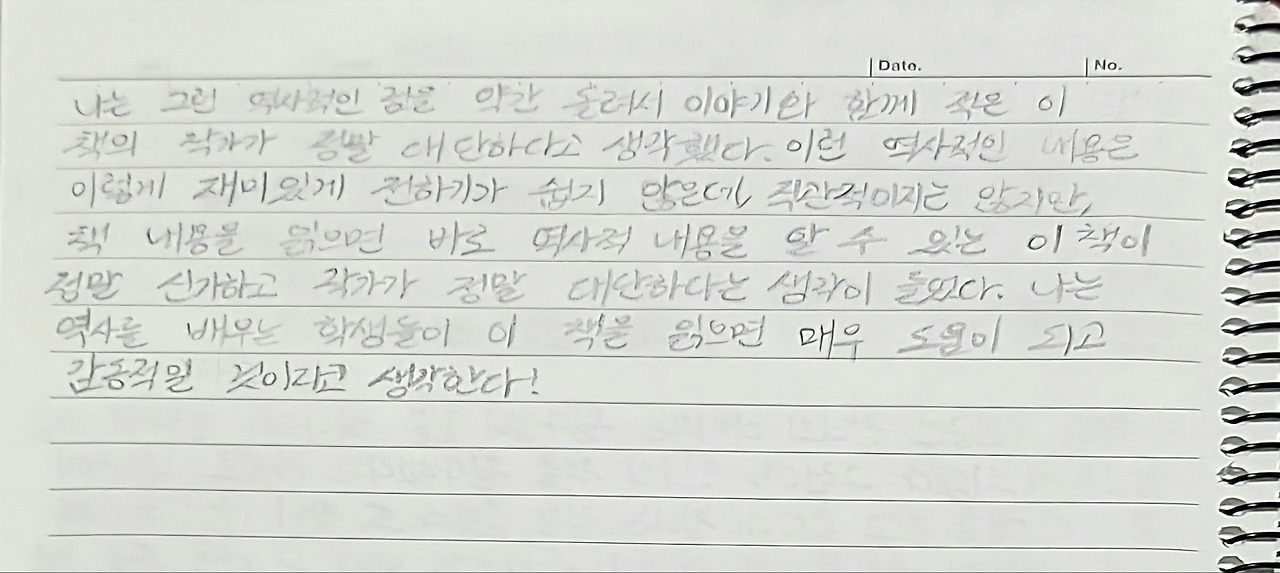 Date.
No.
나는 그런 역사적인 점을 약간 돌려서 이야기와 함께 적은 이
책의 작가가 정말 대단하다고 생각했다. 이런 역사적인 내용은
이렇게 재미있게 전하기가 쉽지 않은데, 직관적이지는 않지만,
책 내용을 읽으면 바로 역사적 내용을 알 수 있는 이 책이
정말 신기하고 작가가 정말 대단하다는 생각이 들었다. 나는
역사를 배우는 학생들이 이 책을 읽으면 매우 도움이 되고
감동적일 것이라고 생각한다!